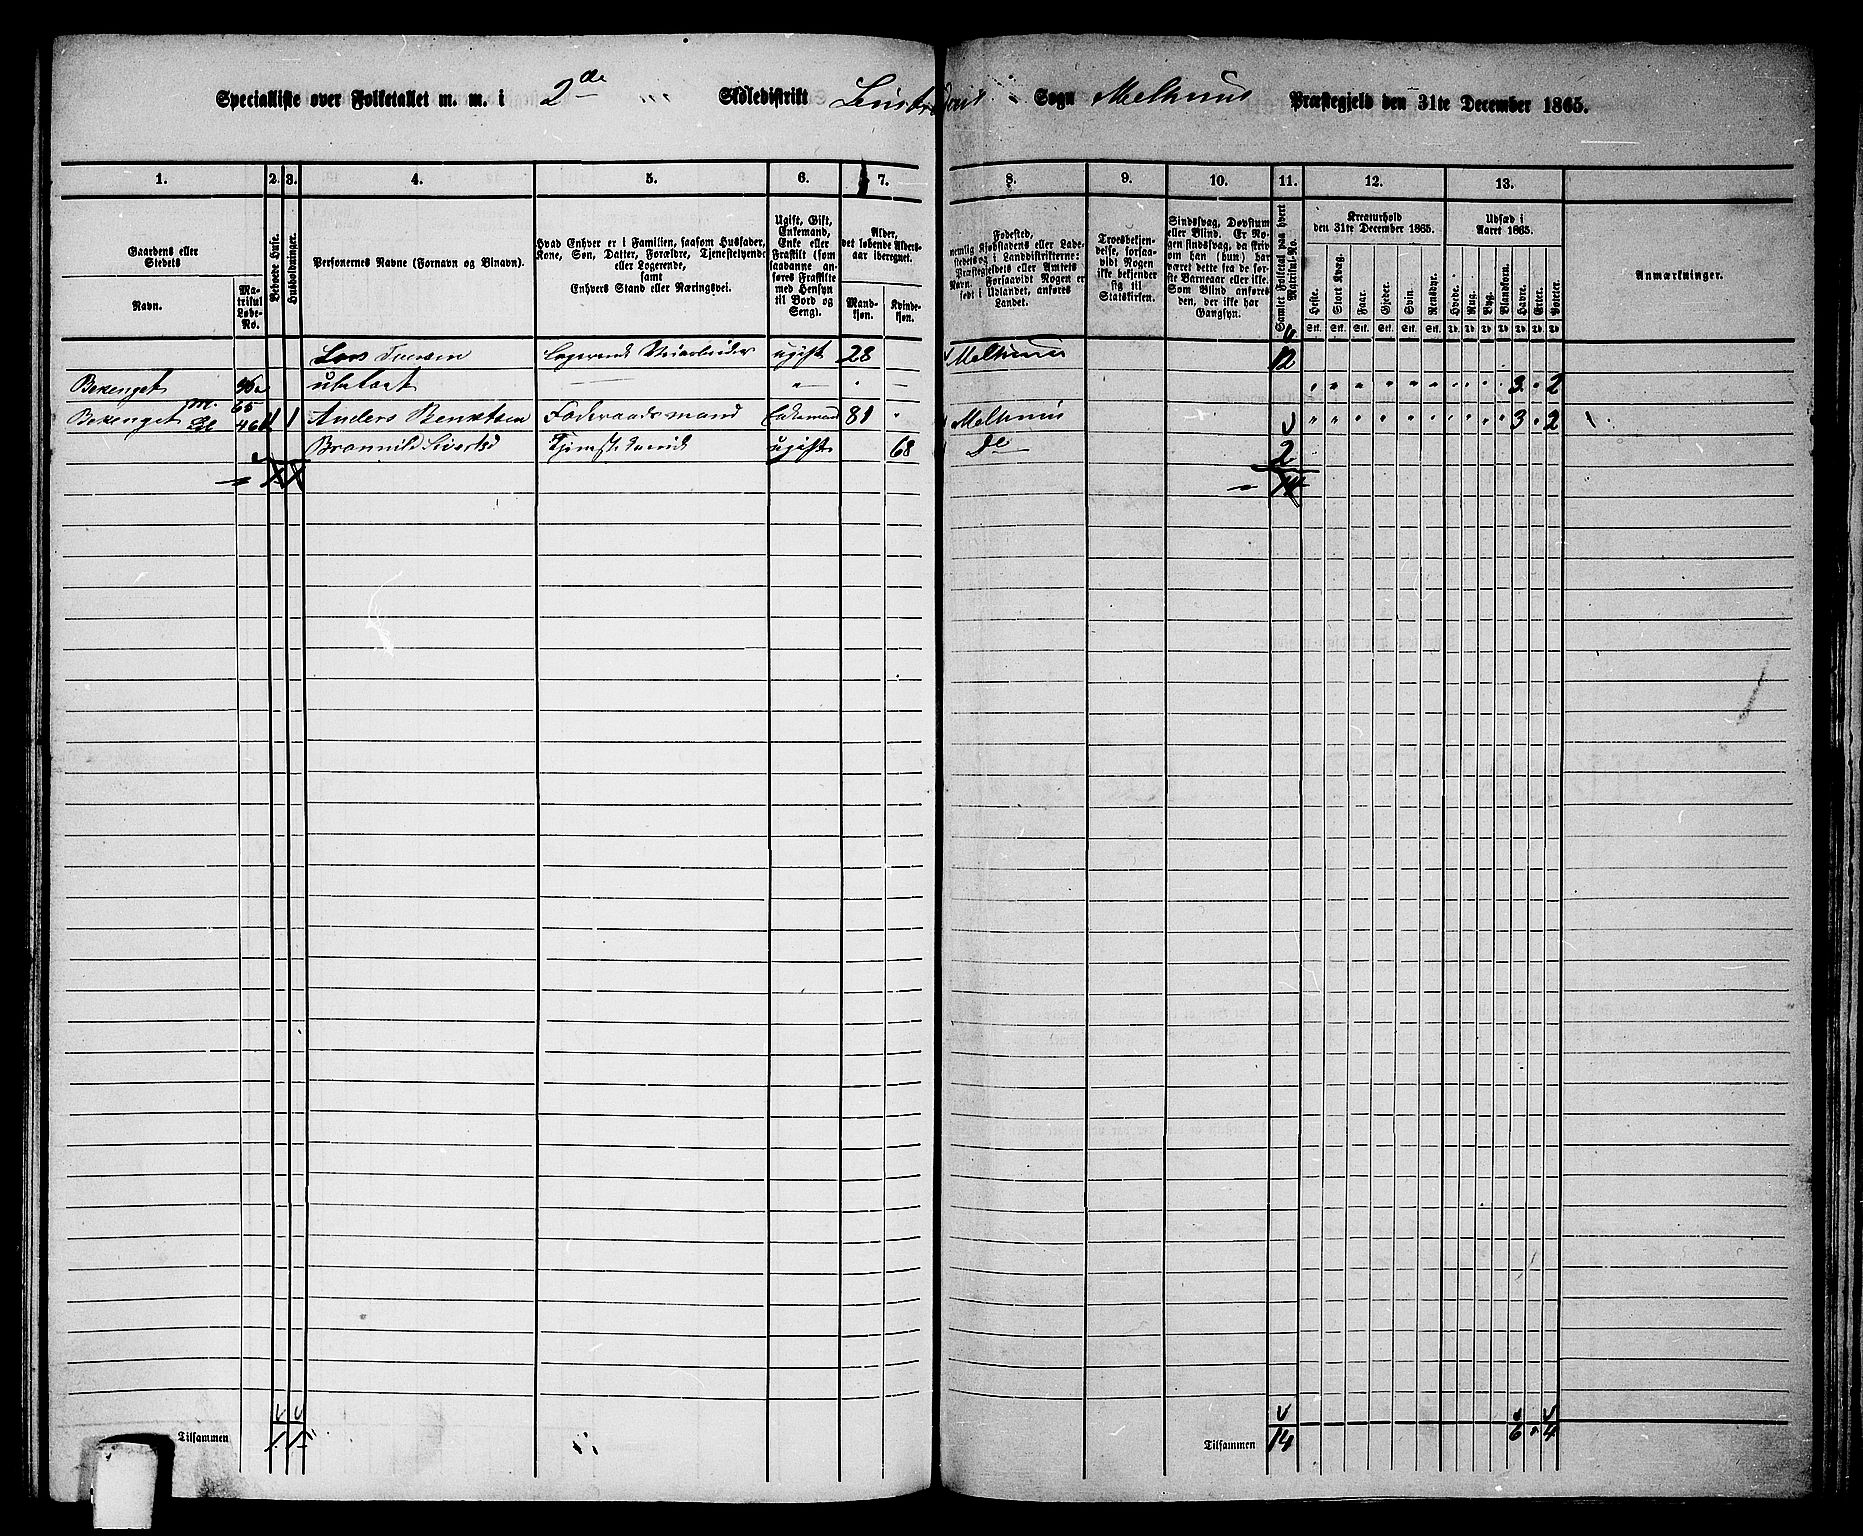 Specialliste over Folketallet m. m. i 2de Skoledistrikt Sogn Melhuus Præstegjeld den 31te December 1865.
1. 2. 3. 4. 5. 6. 7. 8. 9. 10. 11. 12. 13.
Gaardens eller Stedets
Navn.
Matrikul Løbe-No.
Beboede Huse.
Husholdninger.
Personernes Navne (Fornavn og Binavn).
Hvad Enhver er i Familien, saasom Husfader, Kone, Søn, Datter, Forældre, Tjenestetyende eller Logerende, samt Enhvers Stand eller Næringsvei.
Ugift, Gift, Enkemand, Enke eller Fraskilt (som saadanne anføres Fraskilte med Hensyn til Bord og Seng).
Alder, det løbende Aldersaar iberegnet.
Mandkjøn.
Kvindekjøn.
Fødested, nemlig Kjøbstadens eller Ladestedets og i Landdistrikterne: Præstegjeldets eller Amtets Navn. Forsaavidt Nogen er født i Udlandet, anføres Landet.
Troesbekjendelse, forsaavidt Nogen ikke bekjender sig til Statskirken.
Sindssvag, Døvstum eller Blind. Er Nogen sindssvag, da skrives om han (hun) har været dette fra de første Barneaar eller ikke. Som Blind anføres den, der ikke har Gangsyn.
Samlet Folketal paa hvert Matrikul-No.
Kreaturhold den 31te December 1865.
Heste. Stort Kvæg. Faar. Gjeder. Svin. Rensdyr.
Udsæd i Aaret 1865.
Hvede. Rug. Byg. Blandkorn. Havre. Erter. Poteter.
Anmærkninger.
Lars Logerende ugift 28 Melhuus 12
Bekenget " " 3 " 2
Bekenget 65 46 1 1 Anders Benktsen Føderaadsmand Enkemand 81 " Melhuus " " 3 " 2
ugift 68 Do 2
14
Tilsammen 1 1
Tilsammen 14 6 " 4